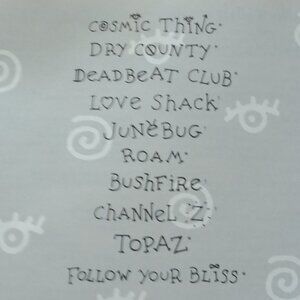 COSMIC THING·
DRY COUNTY·
DEADBEAT CLUB·
LOVE SHACK·
JUNEBUG·
ROAM·
BUSHFIRE·
CHANNEL Z·
TOPAZ·
FOLLOW YOUR BLISS·